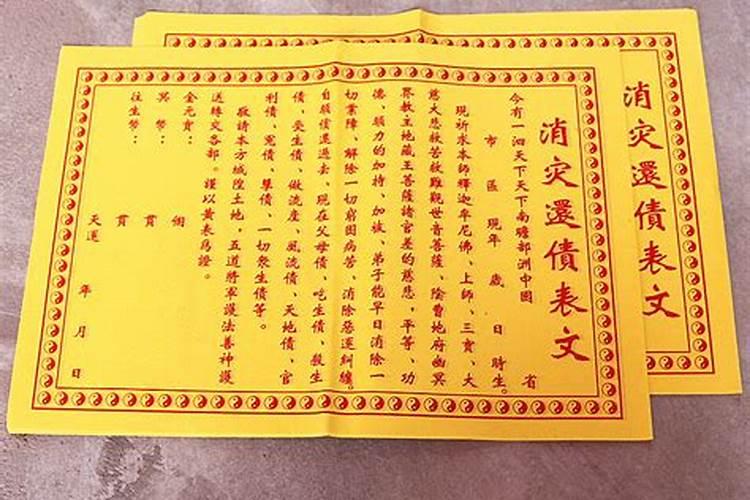 消灾還債表文
今有一泗天下天下南瞻部洲中國 省
市 區 現年 歲 日 時生。
現祈求本師釋迦牟尼佛、上師、三寶、大
慈大悲救苦救難觀世音菩薩、陰曹地府幽冥
界教主地藏王菩薩諸官差的慈悲，平等、功
德、願力的加持、加被、弟子能早日消除一
切業障、解除一切窮困病苦、消除惡運糾纏。
自願償還過去、現在父母債、吃生債、殺生
債、受生債、做流産、風流債、天地債、官
利債、冤債、孽債、一切衆生債等。
敬請本方城隍土地，五道將軍護法善神護
送轉交各部。謹以黃表爲證。
金元寶： 個
冥幣： 貫
往生幣： 貫
天運 年 月 日
消灾還債表文